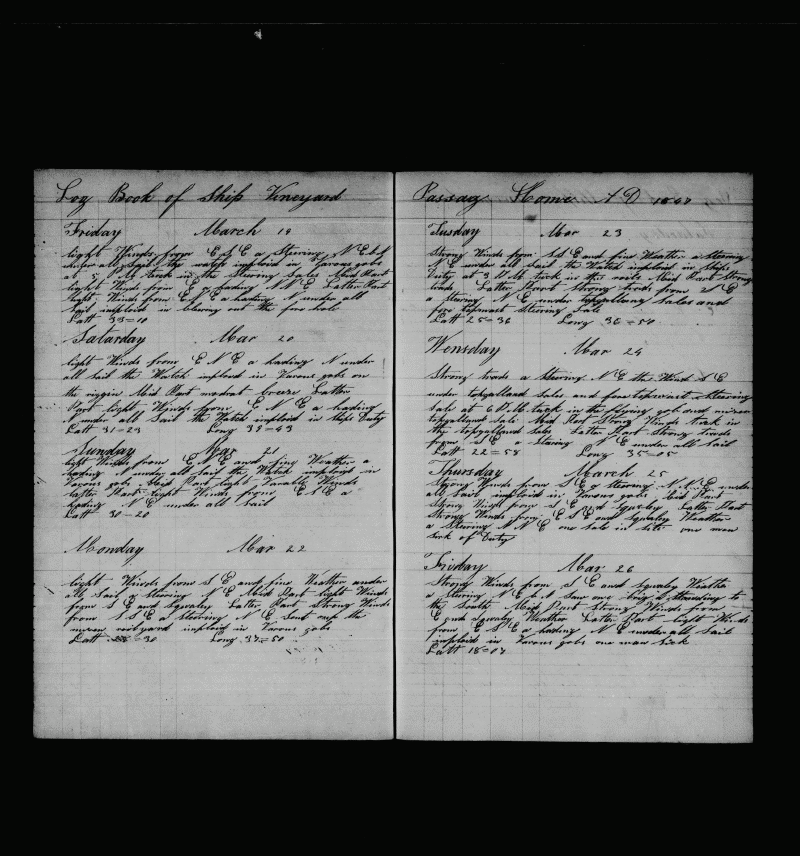 Log Book of Ship Vineyard
Friday March 19
light Winds from E S E a Stearing N E b N
under all Sail the watch imploid in Varous gobs
at 5 P M tack in the Stering Sales Mid Part
light Winds from E a heading N N E Latter Part
light Winds from E N E a heading N under all
Sail imploid in the
Latt 33=10
Satarday Mar 20
light Winds from E N E a heading N under
all Sail the Watch imploid in Varous gobs on
the riggin Mid Part modrat breeze Latter
Part light Winds from E N E a heading
N under all Sail the Watch imploid in Ships Duty
Latt 31=23 Long 38=43
Sunday Mar 21
light Winds from E S E and fine Weather a
heading N under all Sail the Watch imploid in
Varous gobs Mid Part light Varable Winds
Latter Part light Winds from E S E a
heading N E under all Sail
Latt 30=20
Monday Mar 22
light Winds from S E and fine Weather under
all Sail a stearing N E Mid Part light Winds
from S E and Squaley Latter Part Strong Winds
from S S E a stearing N E Sent up the
mizen imploid in Varous gobs
Latt 30 Long 37=50
Passag Home A D 1847
Tusday Mar 23
Strong Winds from S E and fine Weather a stearing
N E under all Sail the Watch imploid in Ships
Duty at 3 P.M. tack in the Mid Part Strong
trads Latter Part Strong trads from
a stearing N E under topgallang Sales and
fore topmast Stearing Sale
Latt 25=36 Long 36=50
Wensday Mar 24
Strong trads a Stearing N E the Wind S E
under topgalland Sales and fore topmast stearing
Sale at 6 P.M. tack in the flying gob and mizen
topgalland Sale Mid Part Strong Winds tack in
the topgalland Sales Latter Part Strong trads
from S E a Stearing N E under all Sail
Latt 22=58 Long 35=05
Thursday March 25
Strong Winds from S E a stearing N N E under
all Sail imploid in Varous gobs Mid Part
Strong Wind from S E and Squaley Latter Part
Strong Winds from E S E and Squaley Weather
a Stearing N N E one Sale in Site one man
Sick of Duty
Friday Mar 26
Strong Winds from S E and Squaley Weather
a Stearing N E b N Saw one brig a standing to
the South Mid Part Strong Winds from
E and Squaley Weather Latter Part light Winds
from E S E a heading N E under all Sail
imploid in Varous gobs one man Sick
Latt 18=07